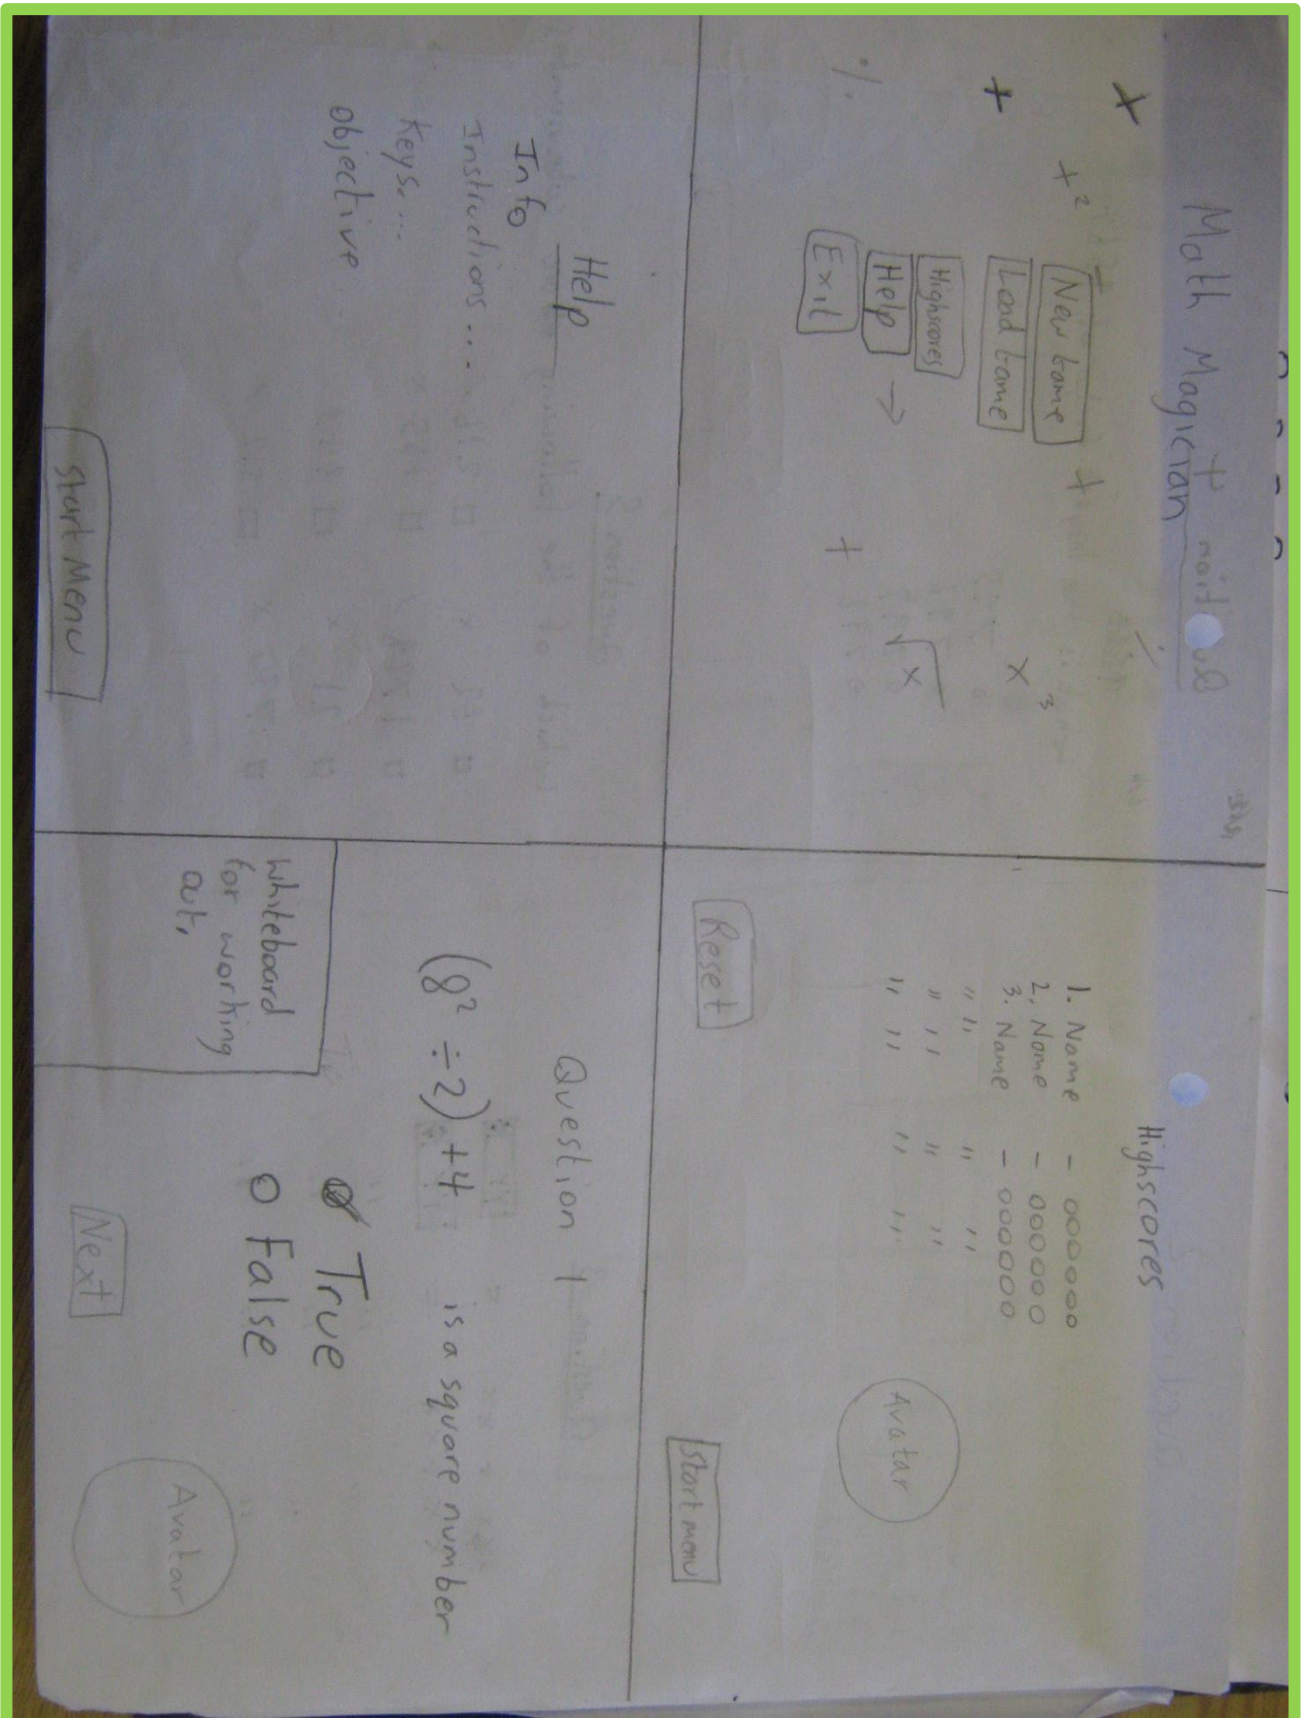 Math Magician
+
×
+²
+
%
New Game
Load Game
Highscores
Help →
Exit
+
+
√x
x³
Highscores
1. Name - 000000
2. Name - 000000
3. Name - 000000
" " " "
" " " "
" " " "
Avatar
Reset
Start menu
Help
Info
Instructions...
Keys....
objective
Start Menu
Question 1
(8² ÷ 2) + 4 is a square number
True
False
Whiteboard
for working
out.
Next
Avatar